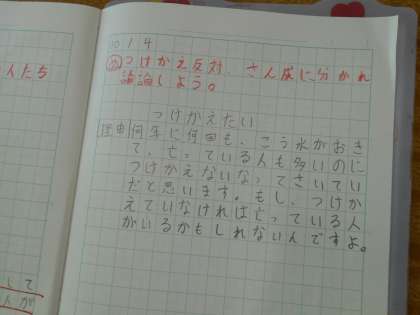 10/4
つけかえ反対、さん成に分かれ
論論しよう。
つけかえたい
理由 何年に何回も、こう水がおき
て、亡っている人も多いのに
つけかえないなってさいてい
だと思います。もし、つけか
えていなければ亡っている人
がいるかもしれないんですよ。
人たち
して
人が